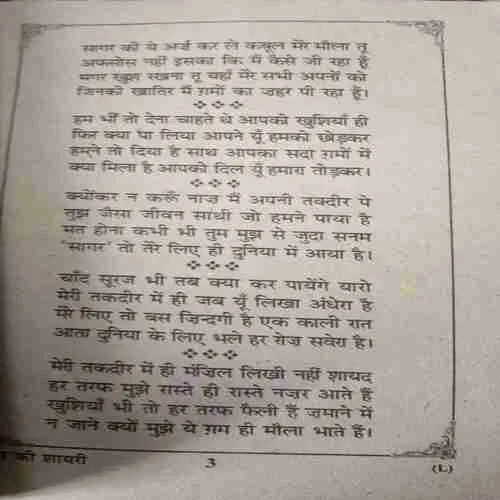 सागर की ये अर्ज़ कर ले कबूल मेरे मौला तू
अफ़सोस नहीं इसका कि मैं कैसे जी रहा हूँ
मगर खुश रखना तू यहाँ मेरे सभी अपनों को
जिनकी खातिर मैं ग़मों का ज़हर पी रहा हूँ।
हम भी तो देना चाहते थे आपको खुशियाँ ही
फिर क्या पा लिया आपने यूँ हमको छोड़कर
हमने तो दिया है साथ आपका सदा ग़मों में
क्या मिला है आपको दिल यूँ हमारा तोड़कर।
क्योंकर न करूँ नाज़ मैं अपनी तक़्दीर पे
तुझ जैसा जीवन साथी जो हमने पाया है
मत होना कभी भी तुम मुझ से जुदा सनम
'सागर' तो तेरे लिए ही दुनिया में आया है।
चाँद सूरज भी तब क्या कर पायेंगे यारो
मेरी तकदीर में ही जब यूँ लिखा अंधेरा है
मेरे लिए तो बस ज़िन्दगी है एक काली रात
आता दुनिया के लिए भले हर रोज़ सवेरा है।
मेरी तकदीर में ही मंज़िल लिखी नहीं शायद
हर तरफ मुझे रास्ते ही रास्ते नज़र आते हैं
खुशियाँ भी तो हर तरफ फैली हैं ज़माने में
न जाने क्यों मुझे ये ग़म ही मौला भाते हैं।
की शायरी
3
(L)